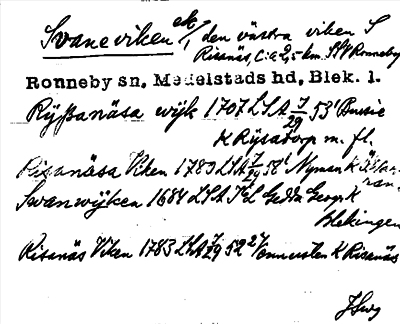 Svaneviken ek/1, den västra viken S
Risanäs, c:a 2,5 km SSV Ronneby
Ronneby sn, Medelstads hd, Blek. l.
Ryssanäsa wijk 1707 LSA 7/29 53' Bussie
K Rysatorp m. fl.
Risanäsa Viken 1783 LSA 7/29 58' Nyman K
Svanwijken 1684 LSA Gedda Geogr. K
Blekingen
Risanäs Viken 1783 LSA 7/29 52 K Risanäs